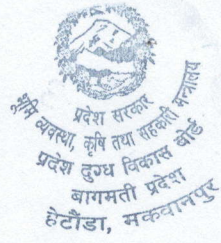 प्रदेश सरकार
भूमि व्यवस्था, कृषि तथा सहकारी मन्त्रालय
प्रदेश दुग्ध विकास बोर्ड
बागमती प्रदेश
हेटौंडा, मकवानपुर